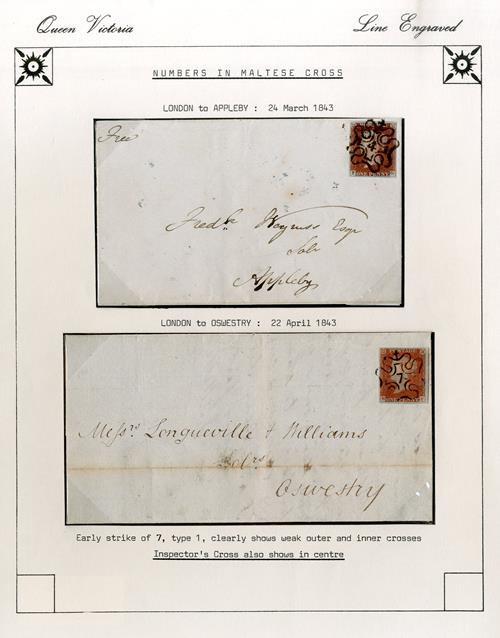 Queen Victoria
Line Engraved
NUMBERS IN MALTESE CROSS
LONDON to APPLEBY : 24 March 1843
Free
4
ONE PENNY
Fredk Esqr
Solr
Appleby
LONDON to OSWESTRY : 22 April 1843
7
ONE PENNY
Messrs Longueville & Williams
Solrs
Oswestry
Early strike of 7, type 1, clearly shows weak outer and inner crosses
Inspector's Cross also shows in centre